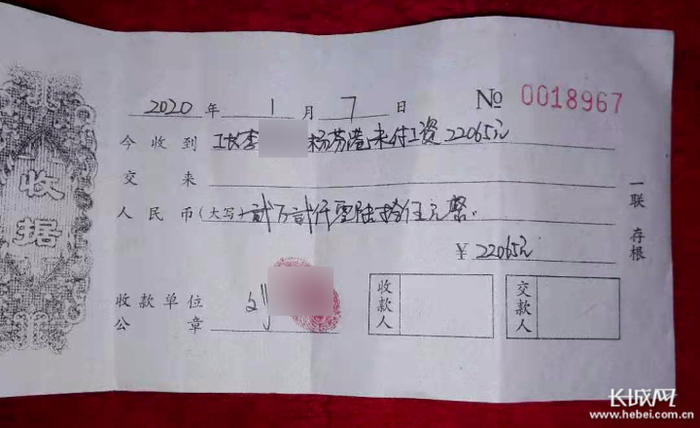 收据
2020 年 1 月 7 日 № 0018967
今收到 工长李 杨芬港未付工资22065元
交来
人民币(大写) 贰万贰仟零陆拾伍元整.
¥ 22065元
收款单位
公章 刘
收款人
交款人
一联存根
长城网
www.hebei.com.cn